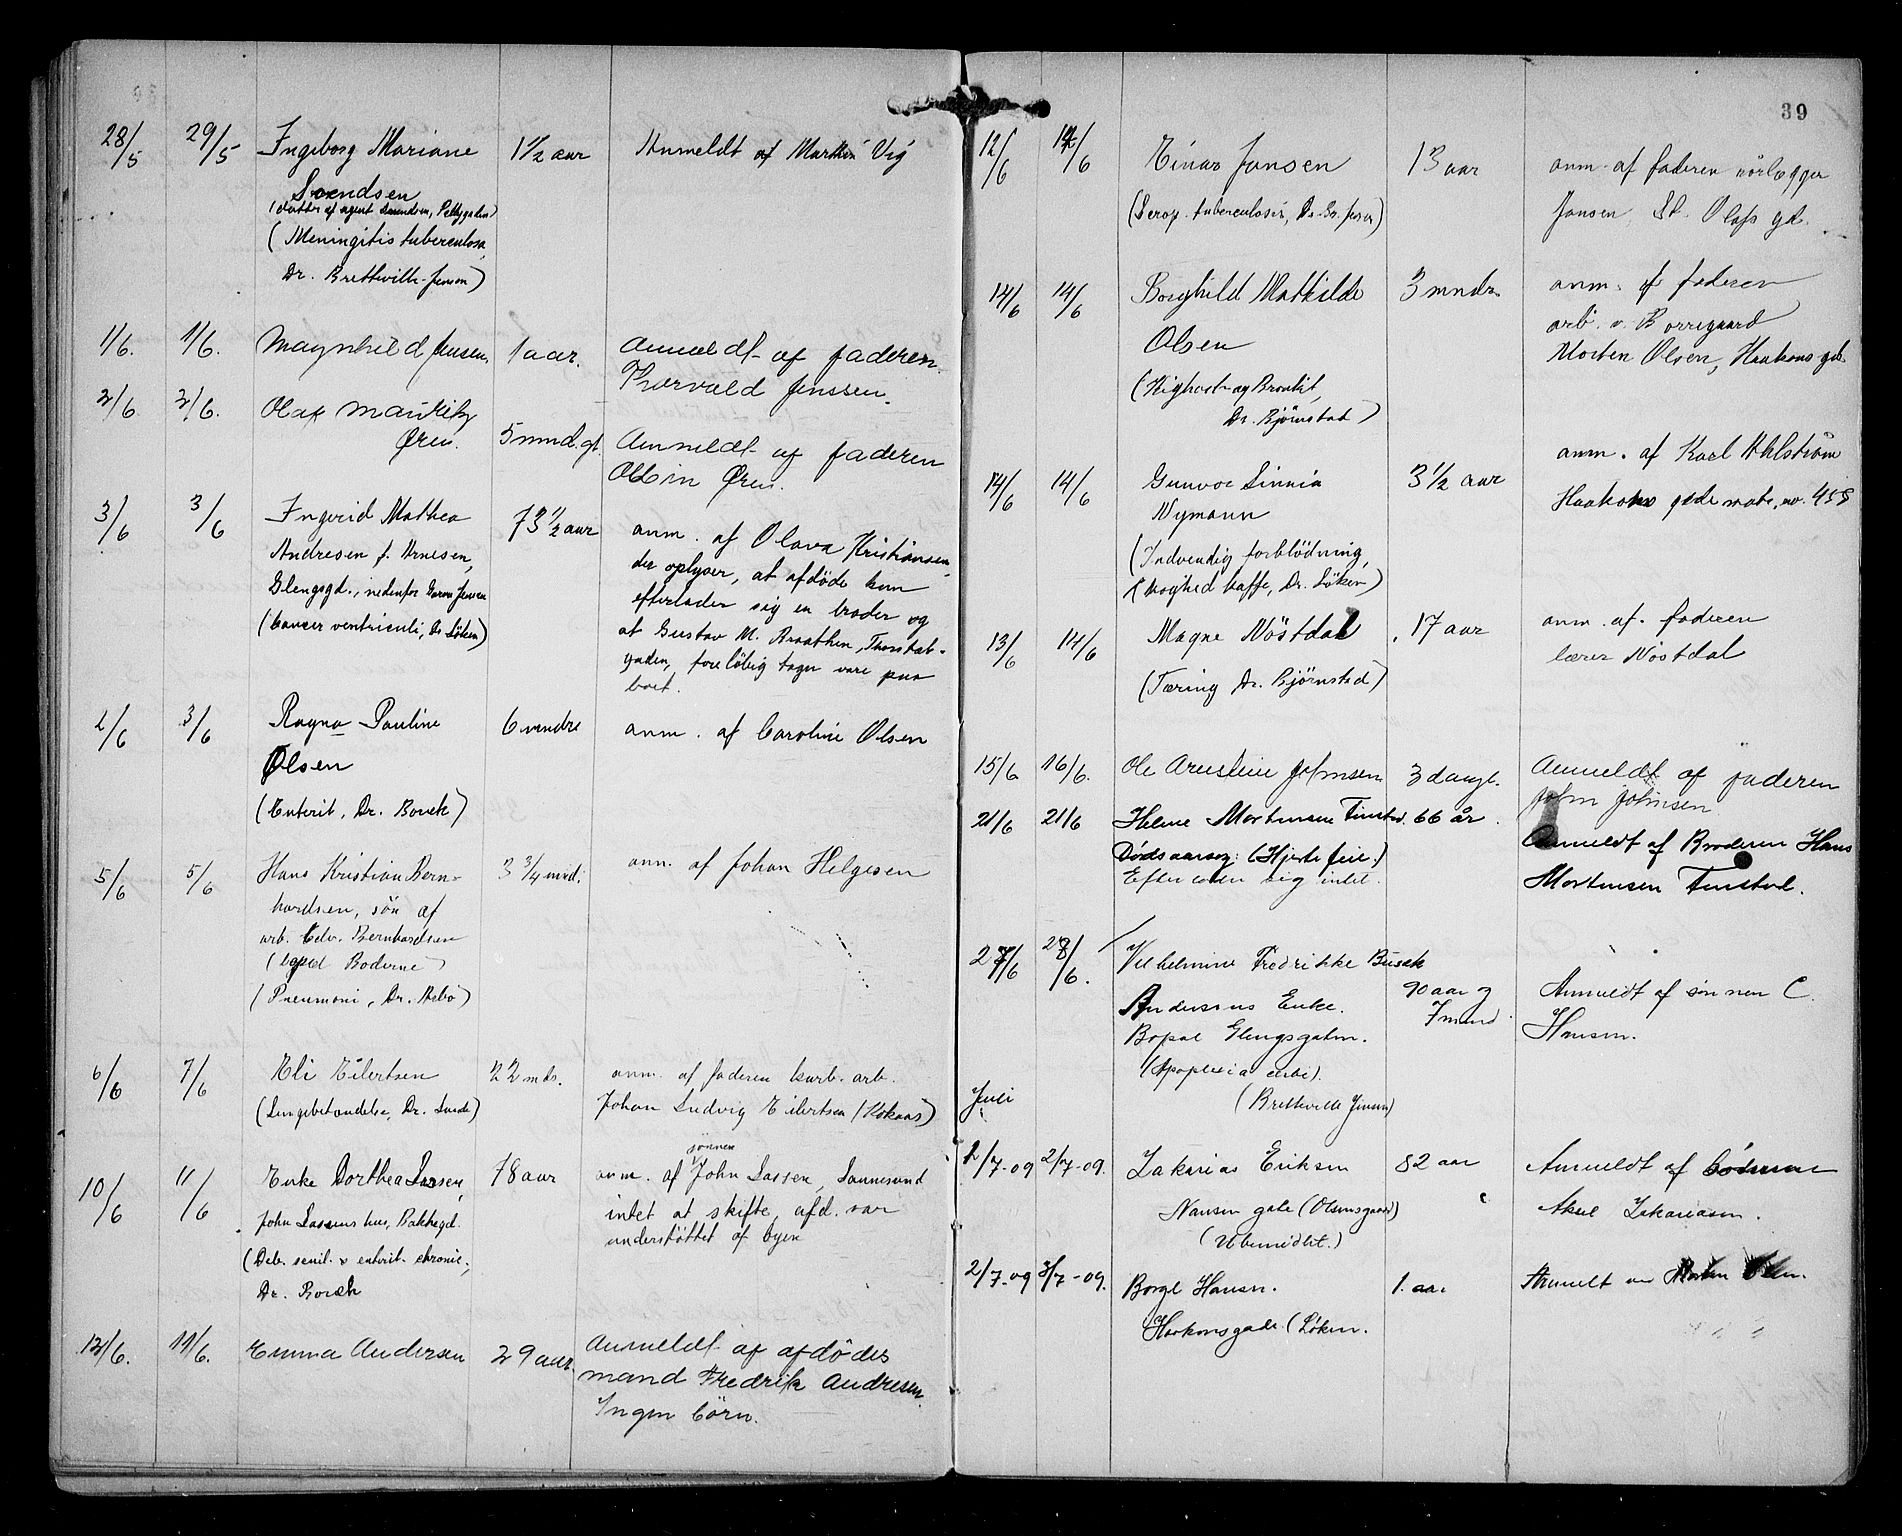 28/5 29/5 Ingeborg Mariane 1 1/2 aar Anmeldt af Marthin Vig
Svendsen
(datter af agent Svendsen, Pellygaden)
(Meningitis tuberculosa,
Dr. Bretteville-Jensen)
1/6. 1/6. Magnhild Jensen. 1 aar. Anmeldt af faderen
Thorvald Jenssen.
2/6. 2/6. Olaf Mauritz
Øren. 5 mnd. gl. Anmeldt af faderen
Øren.
3/6 3/6 Ingerid Mathea 73 1/2 aar anm. af Olava Kristiansen,
Andresen f. Arnesen, der oplyser, at afdöde kun
Glengsgd., nedenfor Jensen efterlader sig en broder og
(Cancer ventriculi, Dr. Löken) at Gustav M. Braathen, Thorstad-
gaden, foreløbig tager vare paa
boet.
2/6 3/6 Ragna Pauline 6 mndr anm. af Caroline Olsen
Olsen
(Enterit, Dr. Borch)
5/6 5/6 Hans Kristian Bern- 3 3/4 mnd. anm. af Johan Helgesen
hardsen, sön af
arb. Edv. Bernhardsen
Boderne)
(Pneumoni, Dr. Arbo)
6/6 7/6 Eli Eilertsen 22 mdr. anm. af faderen karb. arb.
(Lungebetændelse, Dr. Sunde) Johan Ludvig Eilertsen
10/6 11/6 Enke Dorthea Lassen, 78 aar anm. af sönnen John Lassen, Sannesund
John Lassens hus, Bakkegd. intet at skifte, afd. var
(Deb. senil. & enterit. chronic., understöttet af byen
Dr. Borch
12/6. 11/6. Emma Andersen 29 aar. Anmeldt af afdödes
mand Fredrik Andresen.
Ingen börn.
39
12/6 12/6 Einar Jansen 13 aar anm. af faderen rörlægger
Jansen, St. Olafs gd.
14/6 14/6 Borghild Mathilde 3 mndr. anm. af faderen
Olsen arb. v. Borregaard
(Kighoste og Bronkit, Morten Olsen, Haakons gd.
Dr. Björnstad)
14/6 14/6 Gunvor Linnia 3 1/2 aar anm. af Karl Ahlström
Nymann Haakons gade matr. no. 455
(Indvendig forblödning,
kaffe, Dr. Löken)
13/6 14/6 Magne Nöstdal 17 aar anm. af faderen
(Tæring Dr. Björnstad) lærer Nöstdal
15/6 16/6. Ole Johnsen 3 dage Anmeldt af faderen
John Johnsen
21/6 21/6 Helene Mortensen Finstad. 66 år. Anmeldt af Broderen Hans
Dödsaarsag: (Hjertefeil.) Mortensen Finstad.
Efterlader sig intet.
27/6 28/6. Vilhelmine Fredrikke Busch
Andersens Enke. 90 aar og 7 mnd. Anmeldt af sönnen C.
Bopæl Glengsgaten. Hansen.
(Apoplexia cerebri).
(Bretteville Jensen)
Juli
2/7-09 2/7-09. Zakarias Eriksen 82 aar Anmeldt af
Nansen gate (Olsensgaard) Zakariasen.
(Ubemidlet.)
2/7-09 3/7-09. Borge Hansen. 1 aar Anmelt av
Haakonsgade. (Löken.